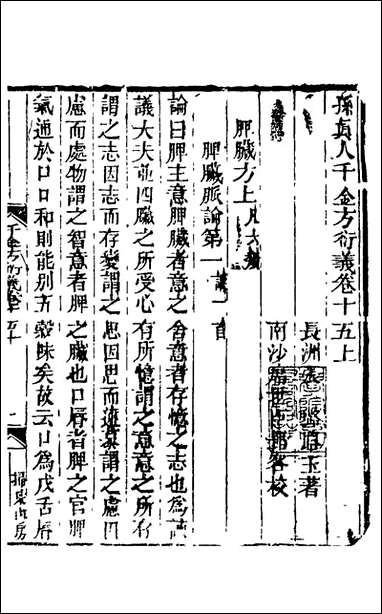 孫真人千金方衍義卷十五上
長洲張 璐路玉著
南沙席世臣鄰哉校
脾臟方上凡六類
脾臟脈論第一論一首
論曰脾主意脾臟者意之舍意者存憶之志也為諫
議大夫並四臟之所受心有所憶謂之意意之所存
謂之志因志而存變謂之思因思而遠慕謂之慮因
慮而處物謂之智意者脾之臟也口唇者脾之官脾
氣通於口口和則能別五穀味矣故云口為戊舌唇
千金方衍義卷十五上
一
掃葉山房